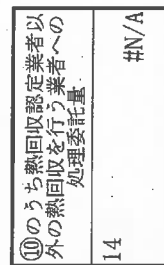 ⑩のうち熱回収認定業者以
外の熱回収を行う業者への
処理委託量
14 #N/A